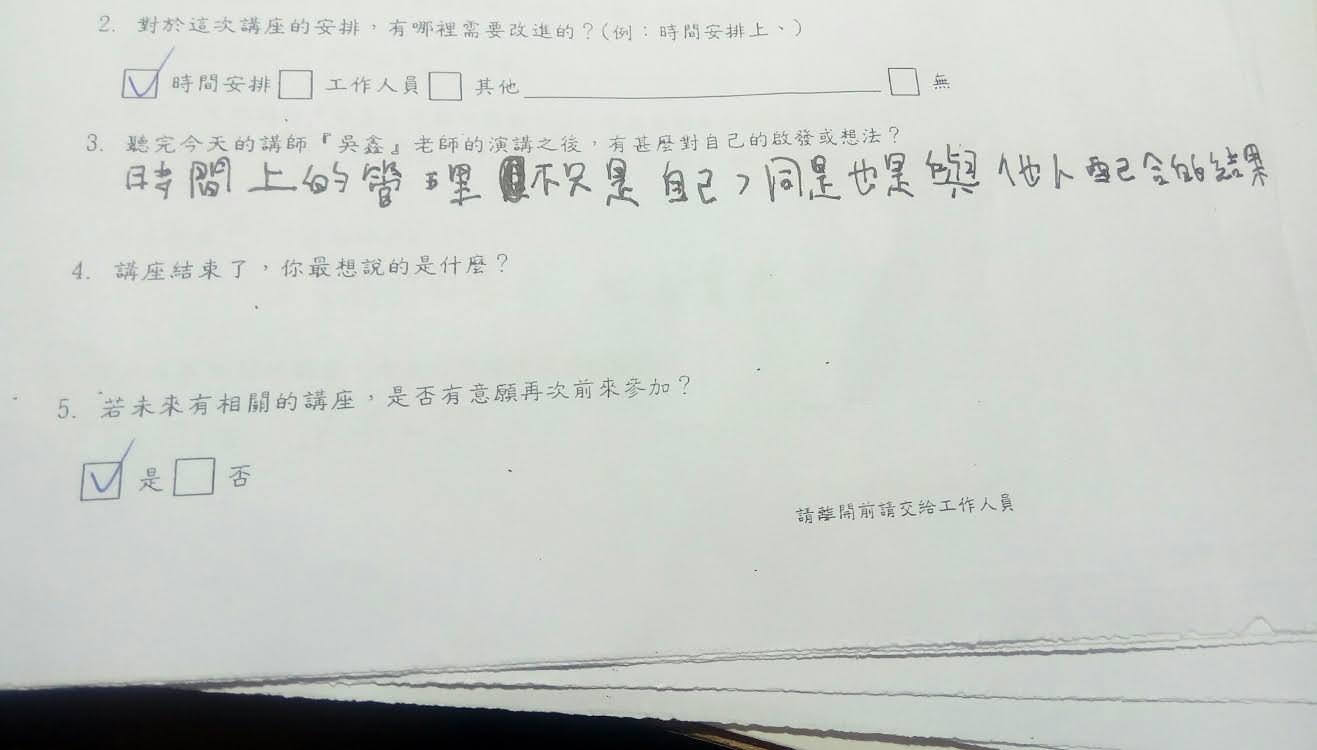 2. 對於這次講座的安排，有哪裡需要改進的？(例：時間安排上、)
☑ 時間安排 □ 工作人員 □ 其他__________ □ 無
3. 聽完今天的講師『吳鑫』老師的演講之後，有甚麼對自己的啟發或想法？
時間上的管理不只是自己，同是也是與他人配合的結果
4. 講座結束了，你最想說的是什麼？
5. 若未來有相關的講座，是否有意願再次前來參加？
☑ 是 □ 否
請離開前請交給工作人員